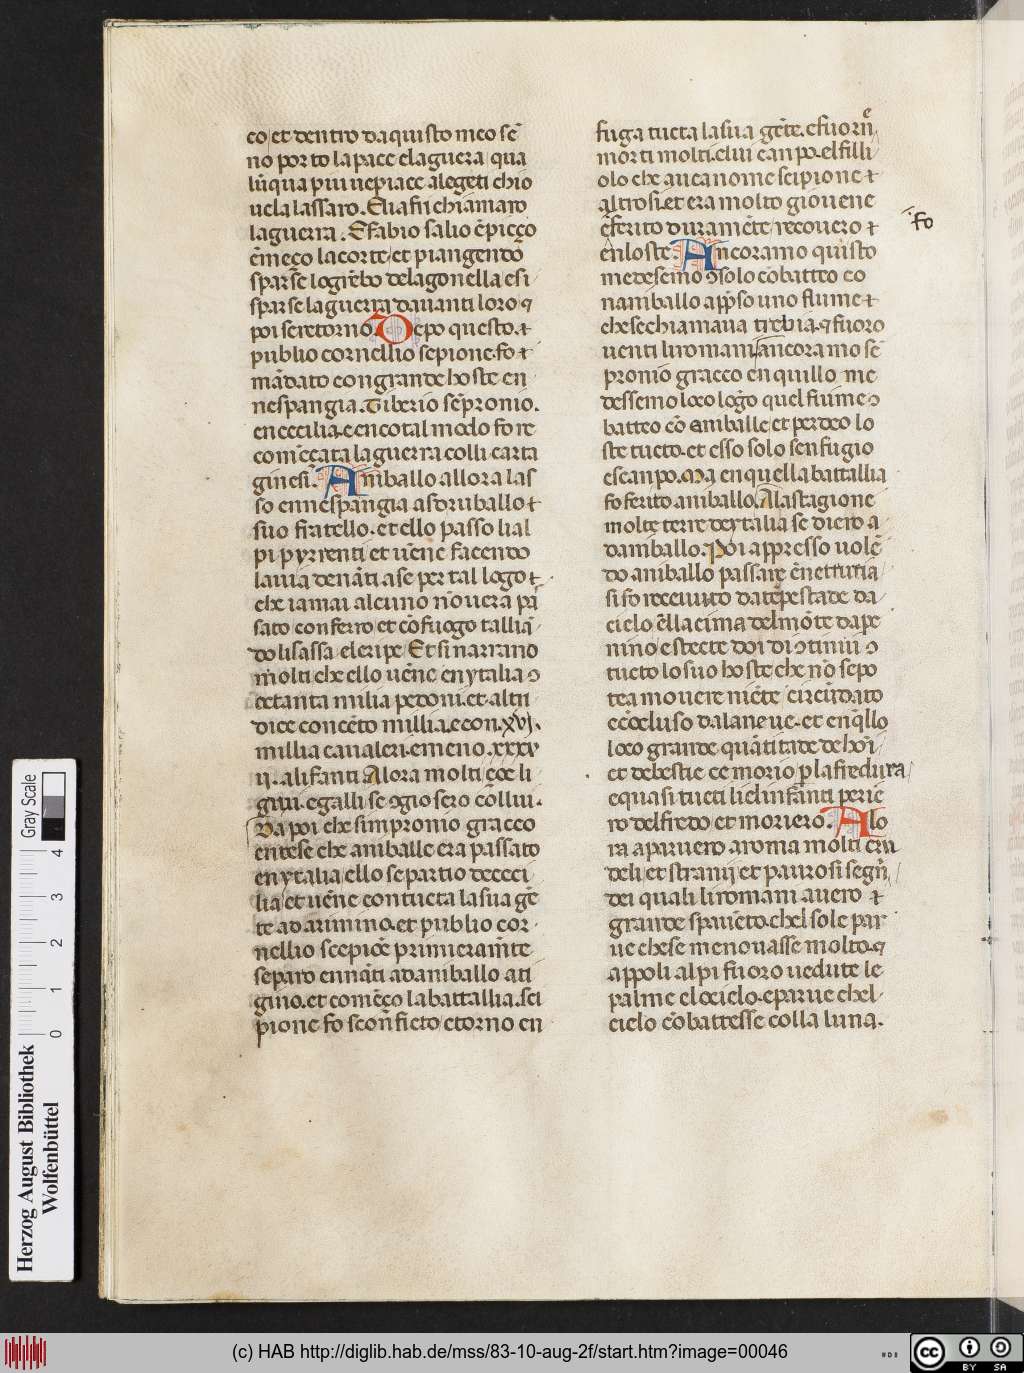 co et dentro da quisto meo sē
no porto la pace e la guera qua
lūqua piu ue piace alegeti chio
ue la lassaro. Elia fu chiamaro
la guerra. E fabio salio ē picço
ē meço la corte et piangendo
sparse lo grēbo de la gonella e si
sparse la guerra dauanti loro ⁊
poi se retorno. Depo questo. ⁊
publio cornellio sepione. fo ⁊
mādato con grande hoste en
nespangia. Tiberio sēpronio.
en cecilia. e en cotal modo fo re
comēçata la guerra colli carta
ginesi. Aniballo allora las
so ennespangia asdruballo ⁊
suo fratello. et ello passo li al
pi pyrrenti et uēne facendo
la uia denāti a se per tal logo ⁊
che iamai alcuno nō uera pa
sato con ferro et cō fuogo tallia
do li sassa e le ripe Et si narrano
molti che ello uēne en ytalia ɔ
cetanta milia pedoni. et altri
dice con cēto millia. e con. xvj.
millia caualeri. e meno. xxxv
ij. alifanti Alora molti ēce li
guri. e galli se ɔgiosero cō llui.
Da poi che simpronio gracco
entese che aniballe era passato
en ytalia ello se partio de ceci
lia et uēne con tucta la sua gē
te ad arimino. et publio cor
nellio scepiōe primieramīte
separo ennāti ad aniballo a ti
gino. et comēço la battallia. sci
pione fo sconficto e torno en
e
fuga tucta la sua gēte. e fuorn̄
morti molti. e lui canpo. el filli
olo che auea nome scipione ⁊
altrosi. et era molto giouene
ē ferito duramēte recouero ⁊
fo
en loste. Ancora mo quisto
medesemo ɔsolo cōbatteo co
naniballo app̄so uno fiume ⁊
che se chiamaua trebia. ⁊ fuoro
uenti li romani ancora mo sē
pronio gracco en quillo me
dessemo loco logo quel fiume ɔ
batteo cō aniballe et perdeo lo
ste tucto. et esso solo sen fugio
e scanpo. Ma en quella battallia
fo ferito aniballo. A la stagione
molte terre de ytalia se diero a
d aniballo. Poi appresso uolē
do aniballo passare ē netruria
si fo receuuto da tēpestade da
cielo ē lla cima del mōte d ape
nino e stecte doi di ɔtinui ɔ
tucto lo suo hoste che nō se po
tea mouere niēte circūdato
e cōcluso da la neue. et en q̄llo
loco grande quātitade de hoī
et de bestie ce morio p̄ la fredura
e quasi tucti li elinfanti perie
ro del fredo et moriero. Alo
ra aparuero a roma molti cru
deli et stranij et paurosi segn̄
dei quali li romani auero ⁊
grande spauēto. chel sole par
ue che se menouasse molto. ⁊
appoli alpi fuoro uedute le
palme e lo cielo. e parue chel
cielo cōbattesse colla luna.
Herzog August Bibliothek
Wolfenbüttel
0 1 2 3 4
Gray Scale
(c) HAB http://diglib.hab.de/mss/83-10-aug-2f/start.htm?image=00046
cc BY SA